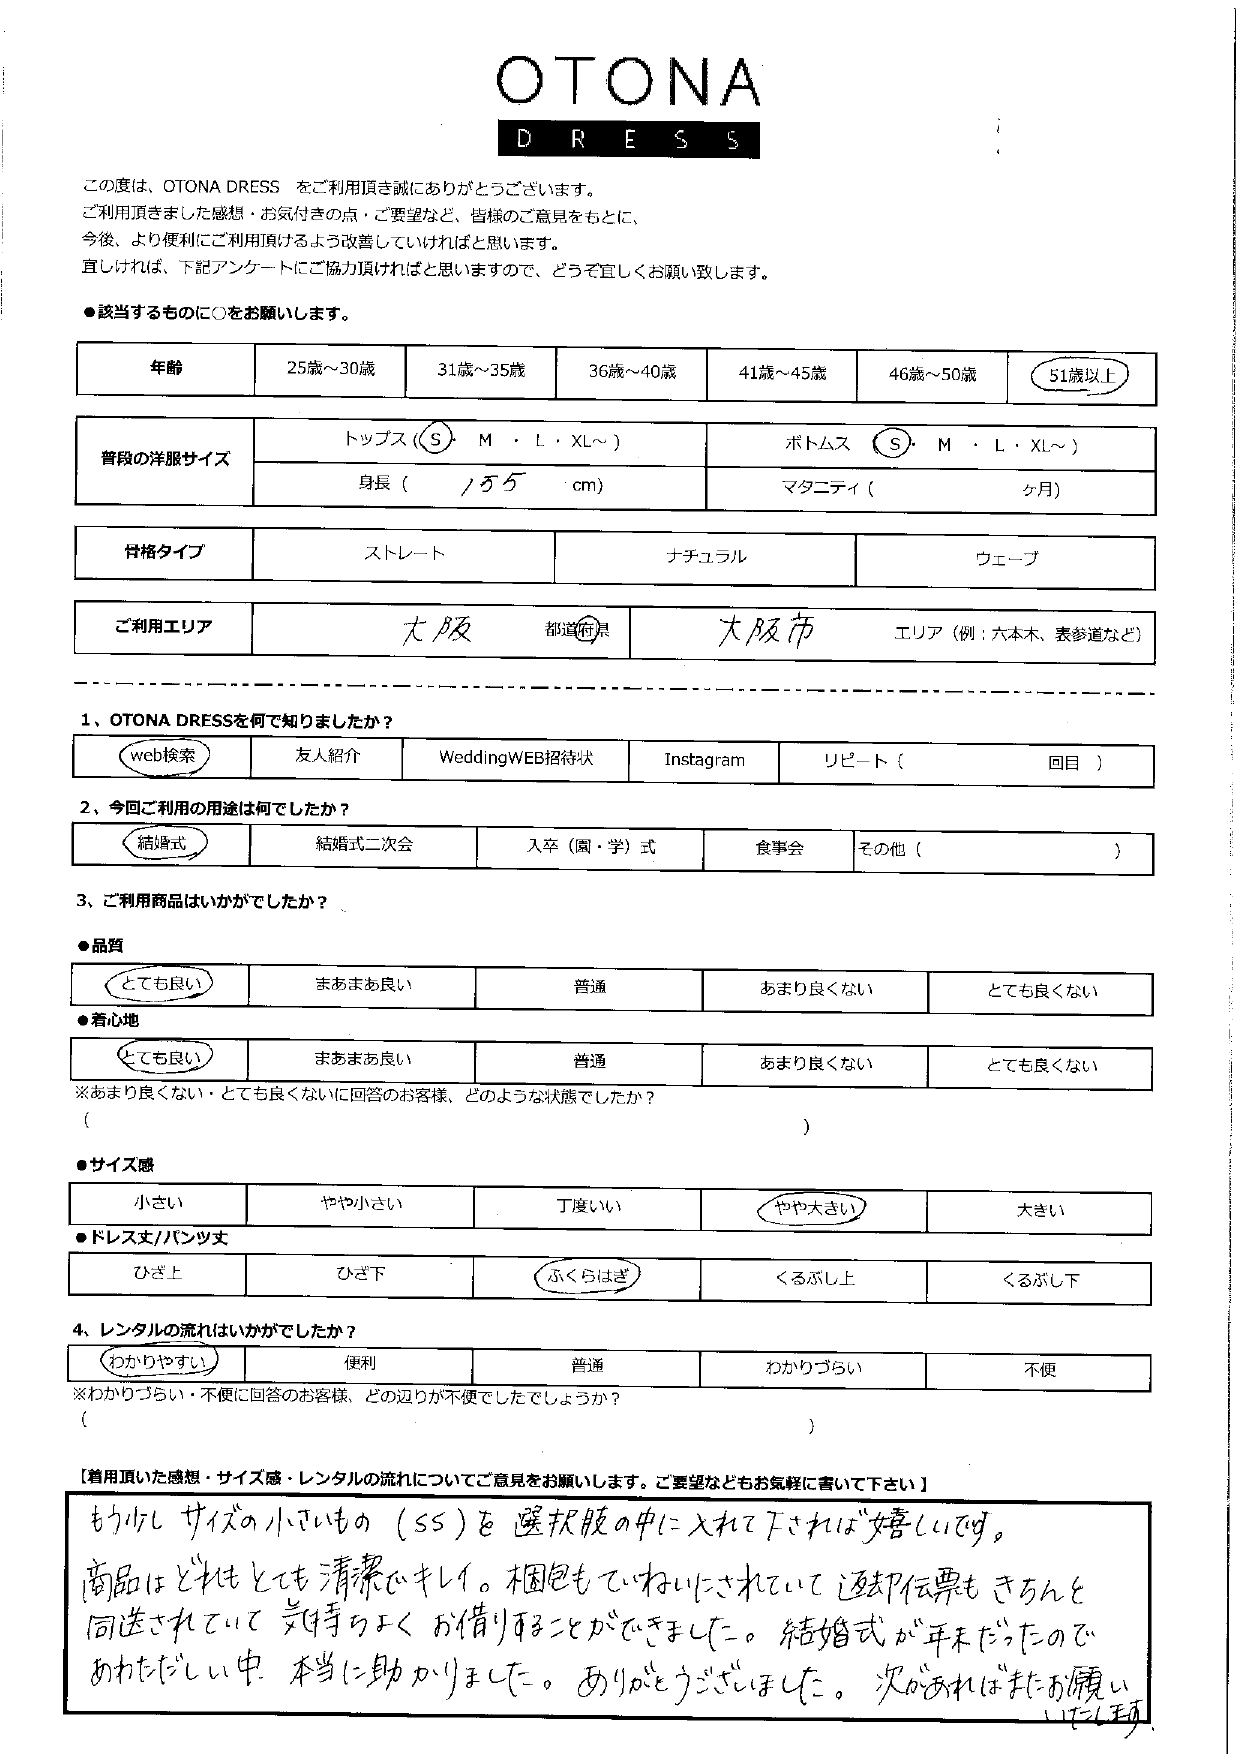 OTONA
DRESS
この度は、OTONA DRESS　をご利用頂き誠にありがとうございます。
ご利用頂きました感想・お気付きの点・ご要望など、皆様のご意見をもとに、
今後、より便利にご利用頂けるよう改善していければと思います。
宜しければ、下記アンケートにご協力頂ければと思いますので、どうぞ宜しくお願い致します。
●該当するものに○をお願いします。
年齢 25歳～30歳 31歳～35歳 36歳～40歳 41歳～45歳 46歳～50歳 51歳以上
普段の洋服サイズ トップス (S・ M ・ L・XL～) ボトムス (S・ M ・ L・XL～)
身長 ( 155 cm) マタニティ ( ヶ月)
骨格タイプ ストレート ナチュラル ウェーブ
ご利用エリア 大阪 都道府県 大阪市 エリア（例：六本木、表参道など）
1、OTONA DRESSを何で知りましたか？
web検索 友人紹介 WeddingWEB招待状 Instagram リピート（ 回目 ）
2、今回ご利用の用途は何でしたか？
結婚式 結婚式二次会 入卒（園・学）式 食事会 その他（ ）
3、ご利用商品はいかがでしたか？
●品質
とても良い まあまあ良い 普通 あまり良くない とても良くない
●着心地
とても良い まあまあ良い 普通 あまり良くない とても良くない
※あまり良くない・とても良くないに回答のお客様、どのような状態でしたか？
( )
●サイズ感
小さい やや小さい 丁度いい やや大きい 大きい
●ドレス丈/パンツ丈
ひざ上 ひざ下 ふくらはぎ くるぶし上 くるぶし下
4、レンタルの流れはいかがでしたか？
わかりやすい 便利 普通 わかりづらい 不便
※わかりづらい・不便に回答のお客様、どの辺りが不便でしたでしょうか？
( )
【着用頂いた感想・サイズ感・レンタルの流れについてご意見をお願いします。ご要望などもお気軽に書いて下さい】
もう少し サイズの小さいもの (SS)を 選択肢の中に入れて下されば嬉しいです。
商品はどれもとても清潔でキレイ。梱包もていねいにされていて返却伝票もきちんと
同送されていて 気持ちよく お借りすることができました。結婚式が年末だったので
あわただしい中 本当に助かりました。ありがとうございました。次があればまたお願い
いたします。